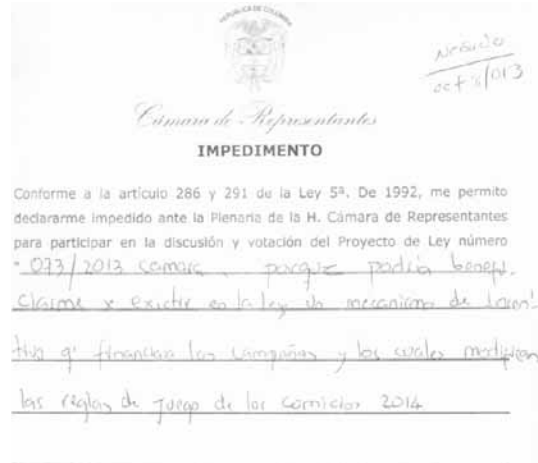 REPUBLICA DE COLOMBIA
Negado
oct /013
Cámara de Representantes
IMPEDIMENTO
Conforme a la artículo 286 y 291 de la Ley 5ª. De 1992, me permito
declararme impedido ante la Plenaria de la H. Cámara de Representantes
para participar en la discusión y votación del Proyecto de Ley número
073/2013 Camara, porque podria benefi-
ciarme x existir en la ley un mecanismo de Incen-
tivo q' financian las campañas y los cuales modifican
las reglas de juego de los comicios 2014